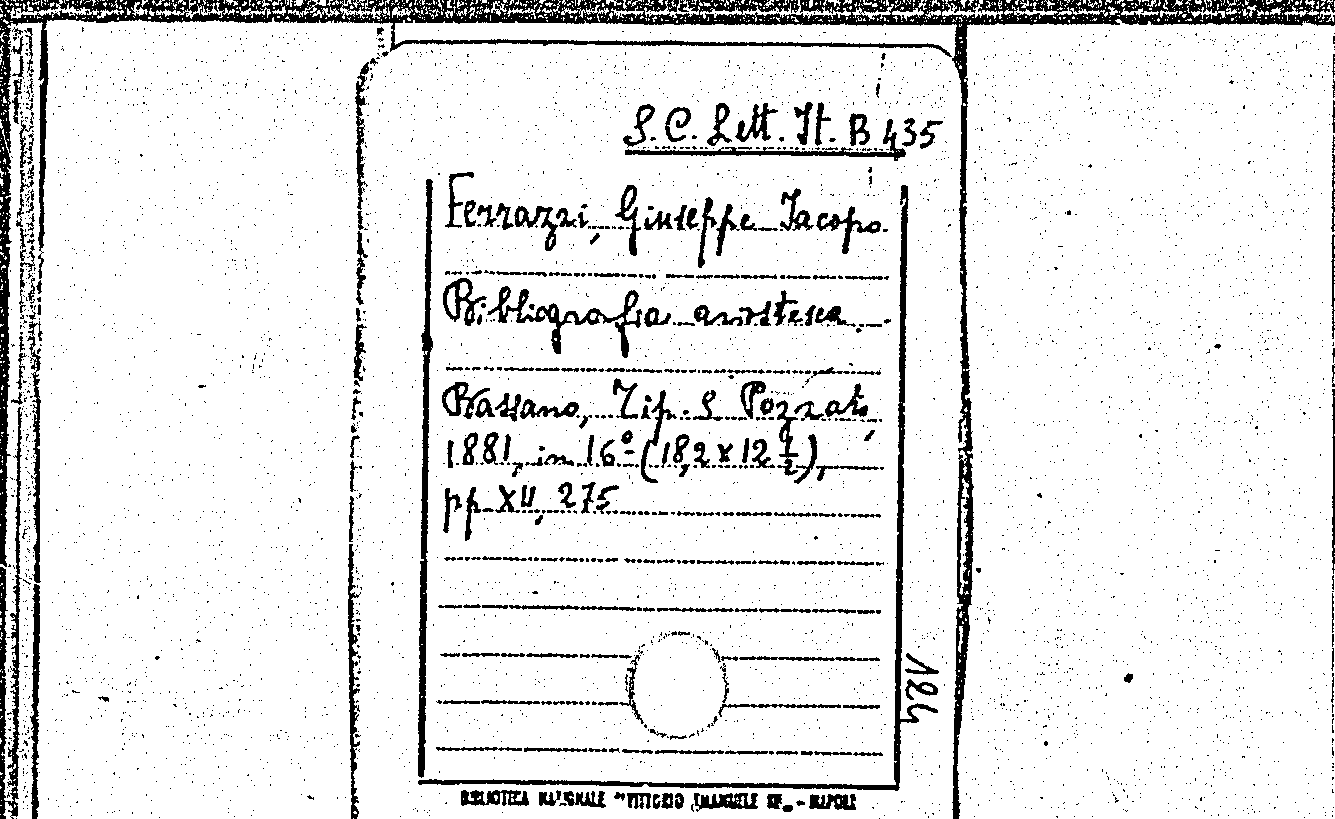 S. C. Lett. It. B 435
Ferrazzi, Giuseppe Jacopo.
Bibliografia ariostesca.
Bassano, Tip. S. Pozzato,
1881, in 16º (18,2 x 12 1/2),
pp. XII, 275
124
BIBLIOTECA NAZIONALE "VITTORIO EMANUELE III" - NAPOLI